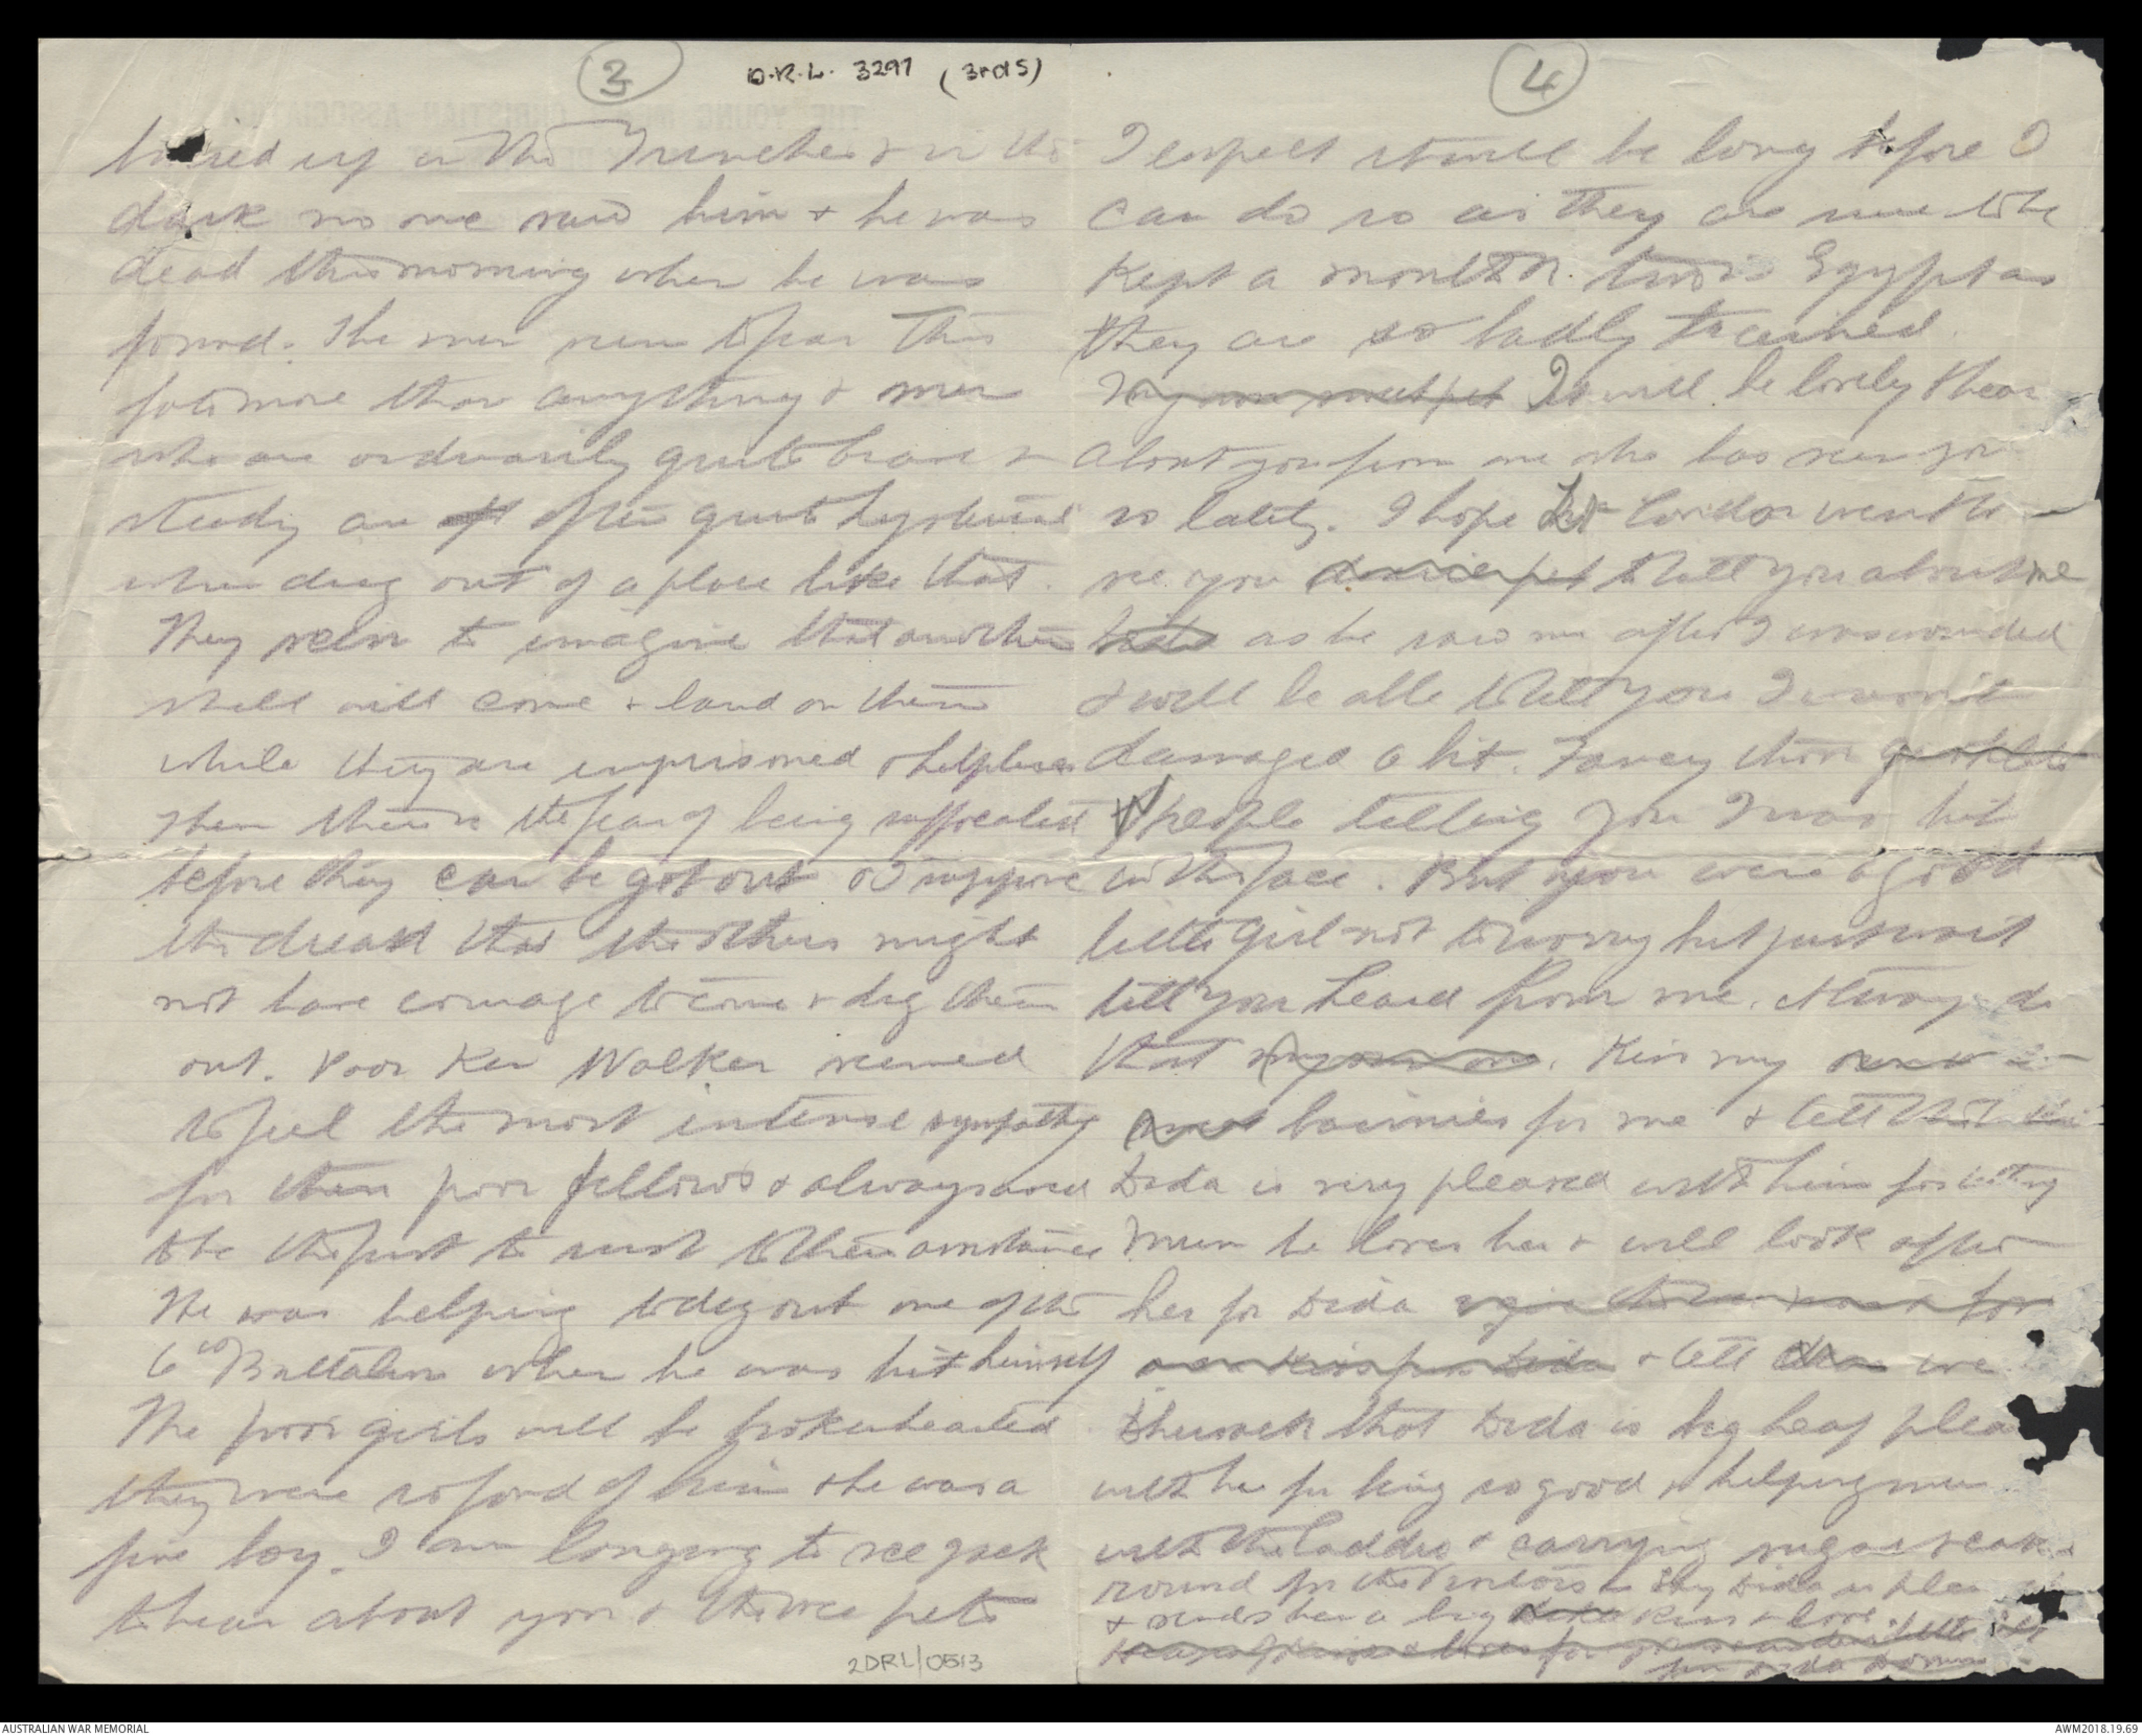 3
O.R.L. 3297 (3rdS)
buried up in the Trenches & in the
dark no one saw him & he was
dead this morning when he was
found. The men seem to fear this
fate more than anything & men
who are ordinarily quite brave &
steady are often quite hysterical
when dug out of a place like that.
They seem to imagine that another
shell will come & land on them
while they are imprisoned & helpless
Then there is the fear of being suffocated
before they can be got out & I suppose
the dread that the others might
not have courage to come & dig them
out. Poor Ken Walker seemed
to feel the most intense sympathy
for them poor fellows & always
to be the first to rush to their assistance
He was helping to dig out one of the
6th Battalion when he was hit himself
The poor girls will be brokenhearted
they were so fond of him & he was a
fine boy. I am longing to see Jack
to hear about you & the wee pets
2DRL/0513
4
I expect it will be long before I
can do so as they are sure to be
kept a month or two in Egypt as
they are so badly trained.
My own sweet pet It will be lovely to hear
about you from one who has seen you
so lately. I hope Lt Condor went to
see you to tell you about me
as he saw me after I was wounded
& will be able to tell you I wasn't
damaged a bit. Fancy those
people telling you I was hit
in the face. But you were a good
little girl not to worry but just wait
till you heard from me. Always do
that my own. Kiss my
sweet bairnies for me & tell the
Dida is very pleased with him for letting
Mum he loves her & will look after
her for Dida
kiss for Dida & tell wee
that Dida is big heap plea
with her for being so good & helping mum
with the laddies & carrying sugar &
round for the visitors Say Dida is plea
& sends her a big kiss & love.
AUSTRALIAN WAR MEMORIAL
AWM2018.19.69